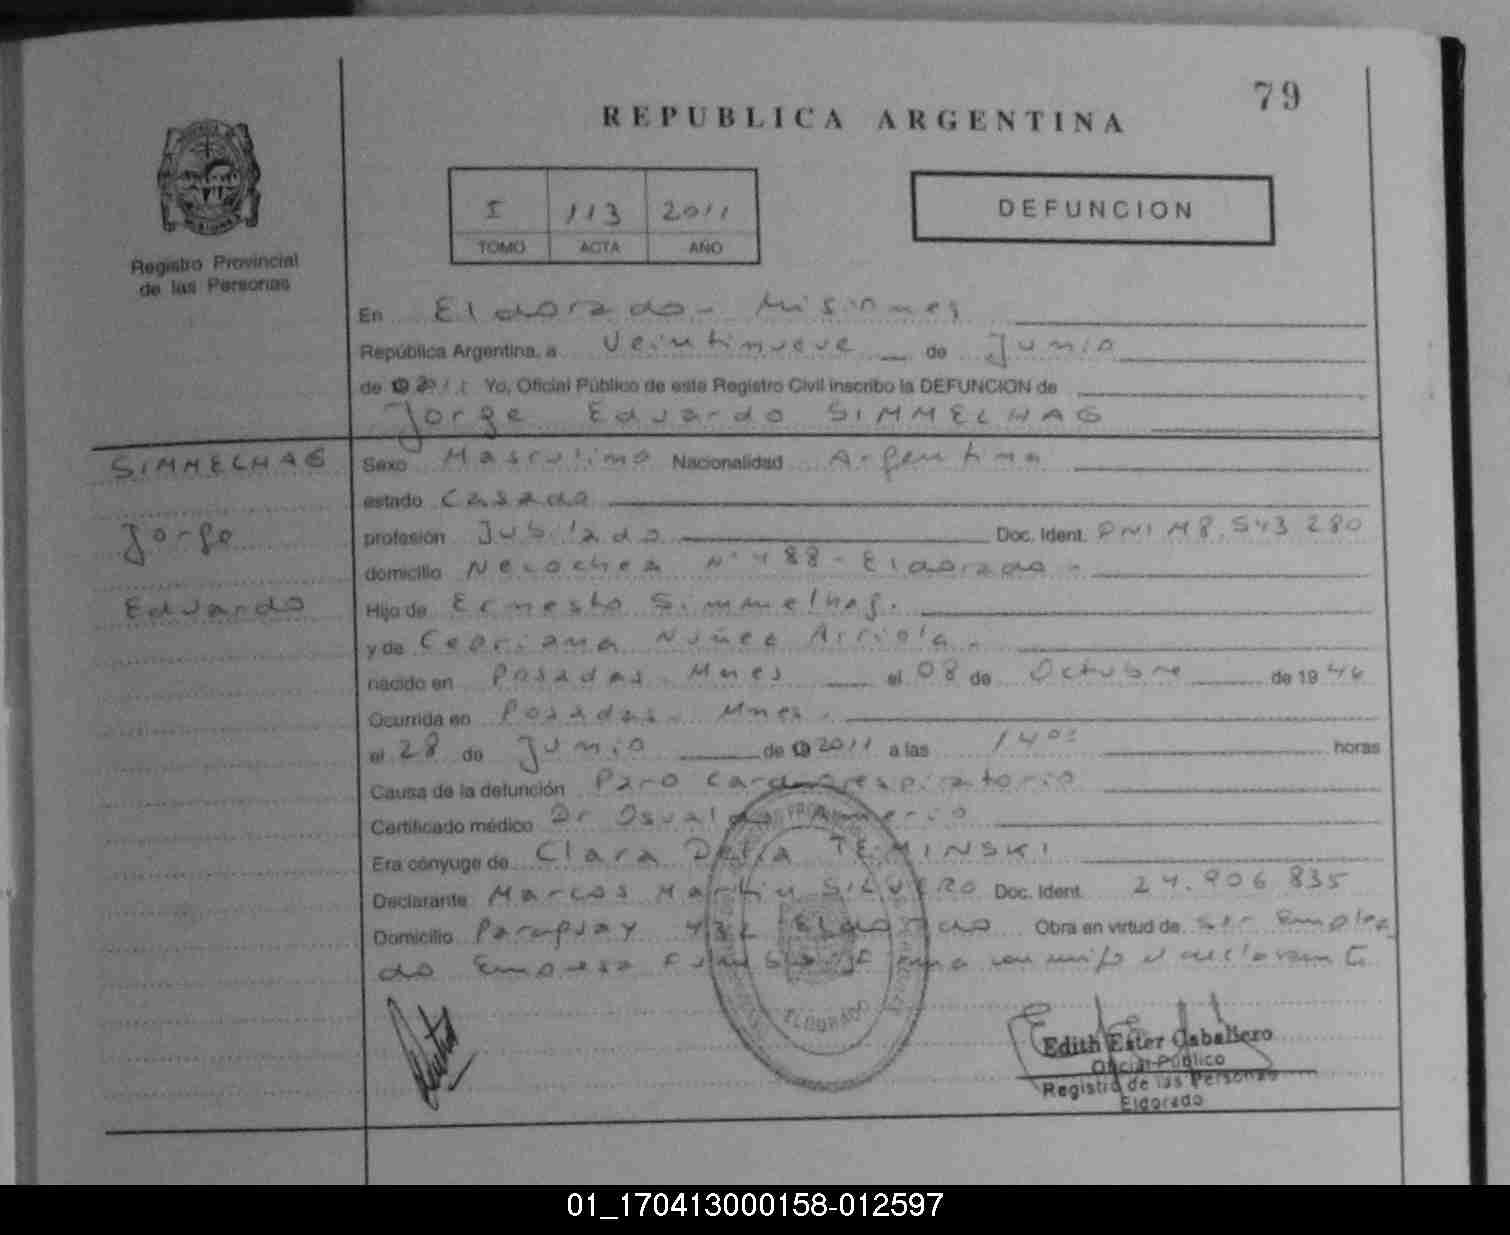 79
REPUBLICA ARGENTINA
I 113 2011
TOMO ACTA AÑO
DEFUNCION
Registro Provincial
de las Personas
En Eldorado - Misiones
República Argentina, a Veintinueve de Junio
de 2011 Yo, Oficial Público de este Registro Civil inscribo la DEFUNCION de
Jorge Eduardo SIMMELHAG
SIMMELHAG
Jorge
Eduardo
Sexo Masculino Nacionalidad Argentina
estado Casado
profesión Jubilado Doc. Ident. DNI M8.543 280
domicilio Necochea N° 488 - Eldorado -
Hijo de Ernesto Simmelhag.
y de Nuñez Arriola.
nacido en Posadas. Mnes el 08 de Octubre de 19 46
Ocurrida en Posadas. Mnes.
el 28 de Junio de 2011 a las 14 horas
Causa de la defunción Paro cardiorespiratorio
Certificado médico Dr Osvaldo
Era cónyuge de Clara Delia
Declarante Marcos Martin SILVERO Doc. Ident. 24.906 835
Domicilio Paraguay 432 Eldorado Obra en virtud de ser Emplea
do Empresa Funebre Firma conmigo el declarante
ELDORADO
Edith Ester Caballero
Oficial Público
Registro de las Personas
Eldorado
01_170413000158-012597